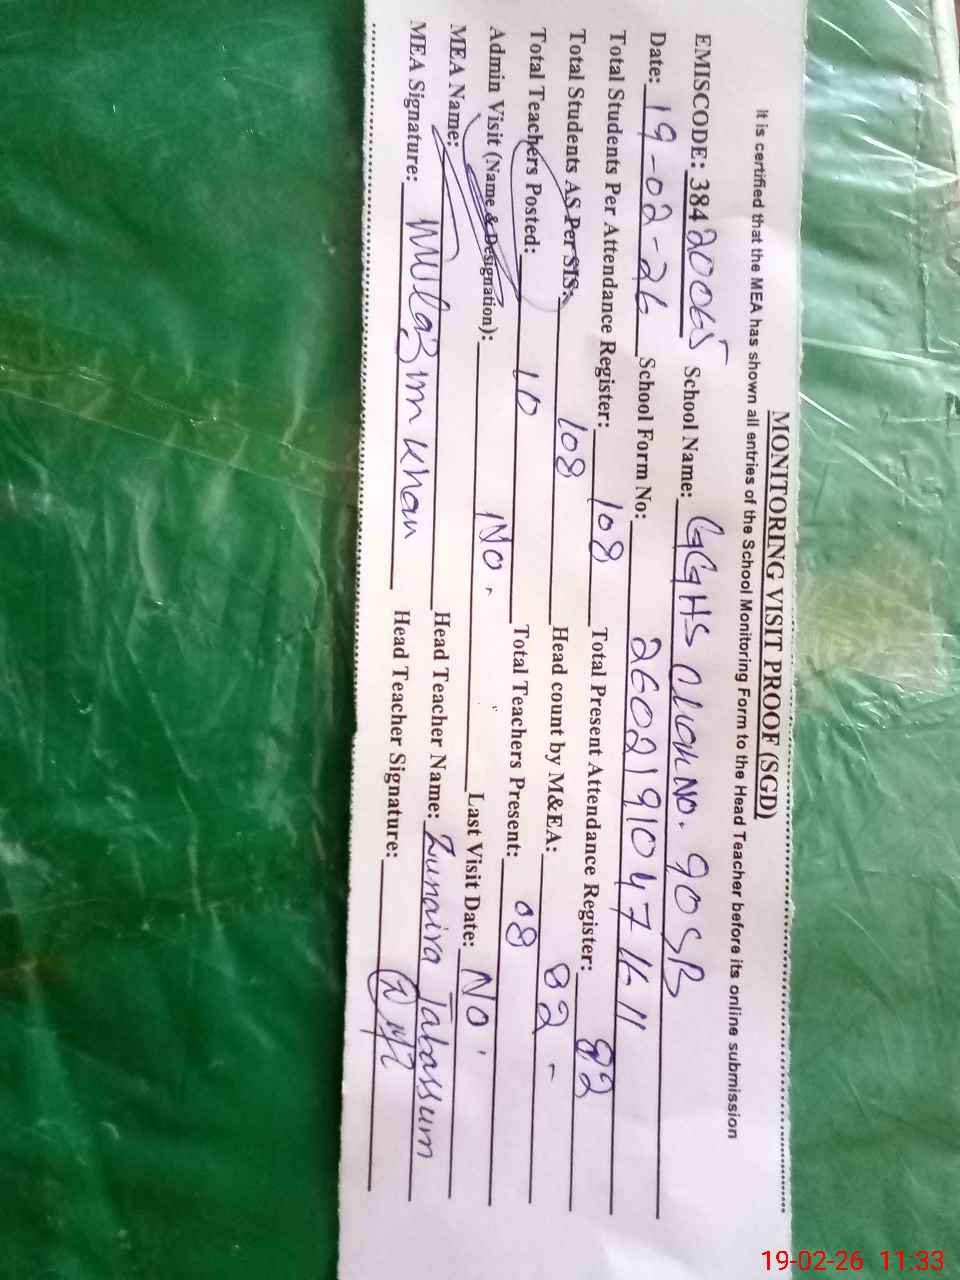 MONITORING VISIT PROOF (SGD)
It is certified that the MEA has shown all entries of the School Monitoring Form to the Head Teacher before its online submission
EMISCODE: 38420065 School Name: GGHS Chak No. 90 SB
Date: 19-02-26 School Form No:
Total Students Per Attendance Register: 108 Total Present Attendance Register: 82
Total Students AS Per SIS: 108 Head count by M&EA: 82
Total Teachers Posted: 10 Total Teachers Present: 08
Admin Visit (Name & Designation): No. Last Visit Date: No
MEA Name: Mulazim Khan Head Teacher Name: Zunaira Tabassum
MEA Signature: Head Teacher Signature:
19-02-26 11:33